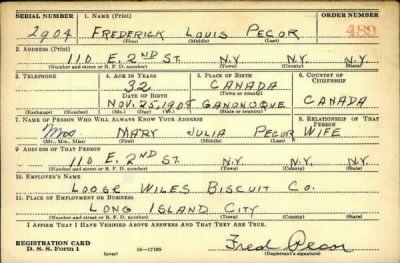 SERIAL NUMBER 1. NAME (Print) ORDER NUMBER
2904 FREDERICK LOUIS PECOR 489
(First) (Middle) (Last)
2. ADDRESS (Print)
110 E. 2ND ST. N.Y. N.Y.
(Number and street or R. F. D. number) (Town) (County) (State)
3. TELEPHONE 4. AGE IN YEARS 5. PLACE OF BIRTH 6. COUNTRY OF CITIZENSHIP
32 CANADA
DATE OF BIRTH (Town or county)
NOV. 25, 1908 GANONOQUE CANADA
(Exchange) (Number) (Mo.) (Day) (Yr.) (State or country)
7. NAME OF PERSON WHO WILL ALWAYS KNOW YOUR ADDRESS 8. RELATIONSHIP OF THAT PERSON
Mrs MARY JULIA PECOR WIFE
(Mr., Mrs., Miss) (First) (Middle) (Last)
9. ADDRESS OF THAT PERSON
110 E. 2ND ST. N.Y. N.Y.
(Number and street or R. F. D. number) (Town) (County) (State)
10. EMPLOYER'S NAME
LOOSE WILES BISCUIT CO.
11. PLACE OF EMPLOYMENT OR BUSINESS
LONG ISLAND CITY
(Number and street or R. F. D. number) (Town) (County) (State)
I AFFIRM THAT I HAVE VERIFIED ABOVE ANSWERS AND THAT THEY ARE TRUE.
REGISTRATION CARD
D. S. S. Form 1 16-17105 Fred Pecor
(over) (Registrant's signature)